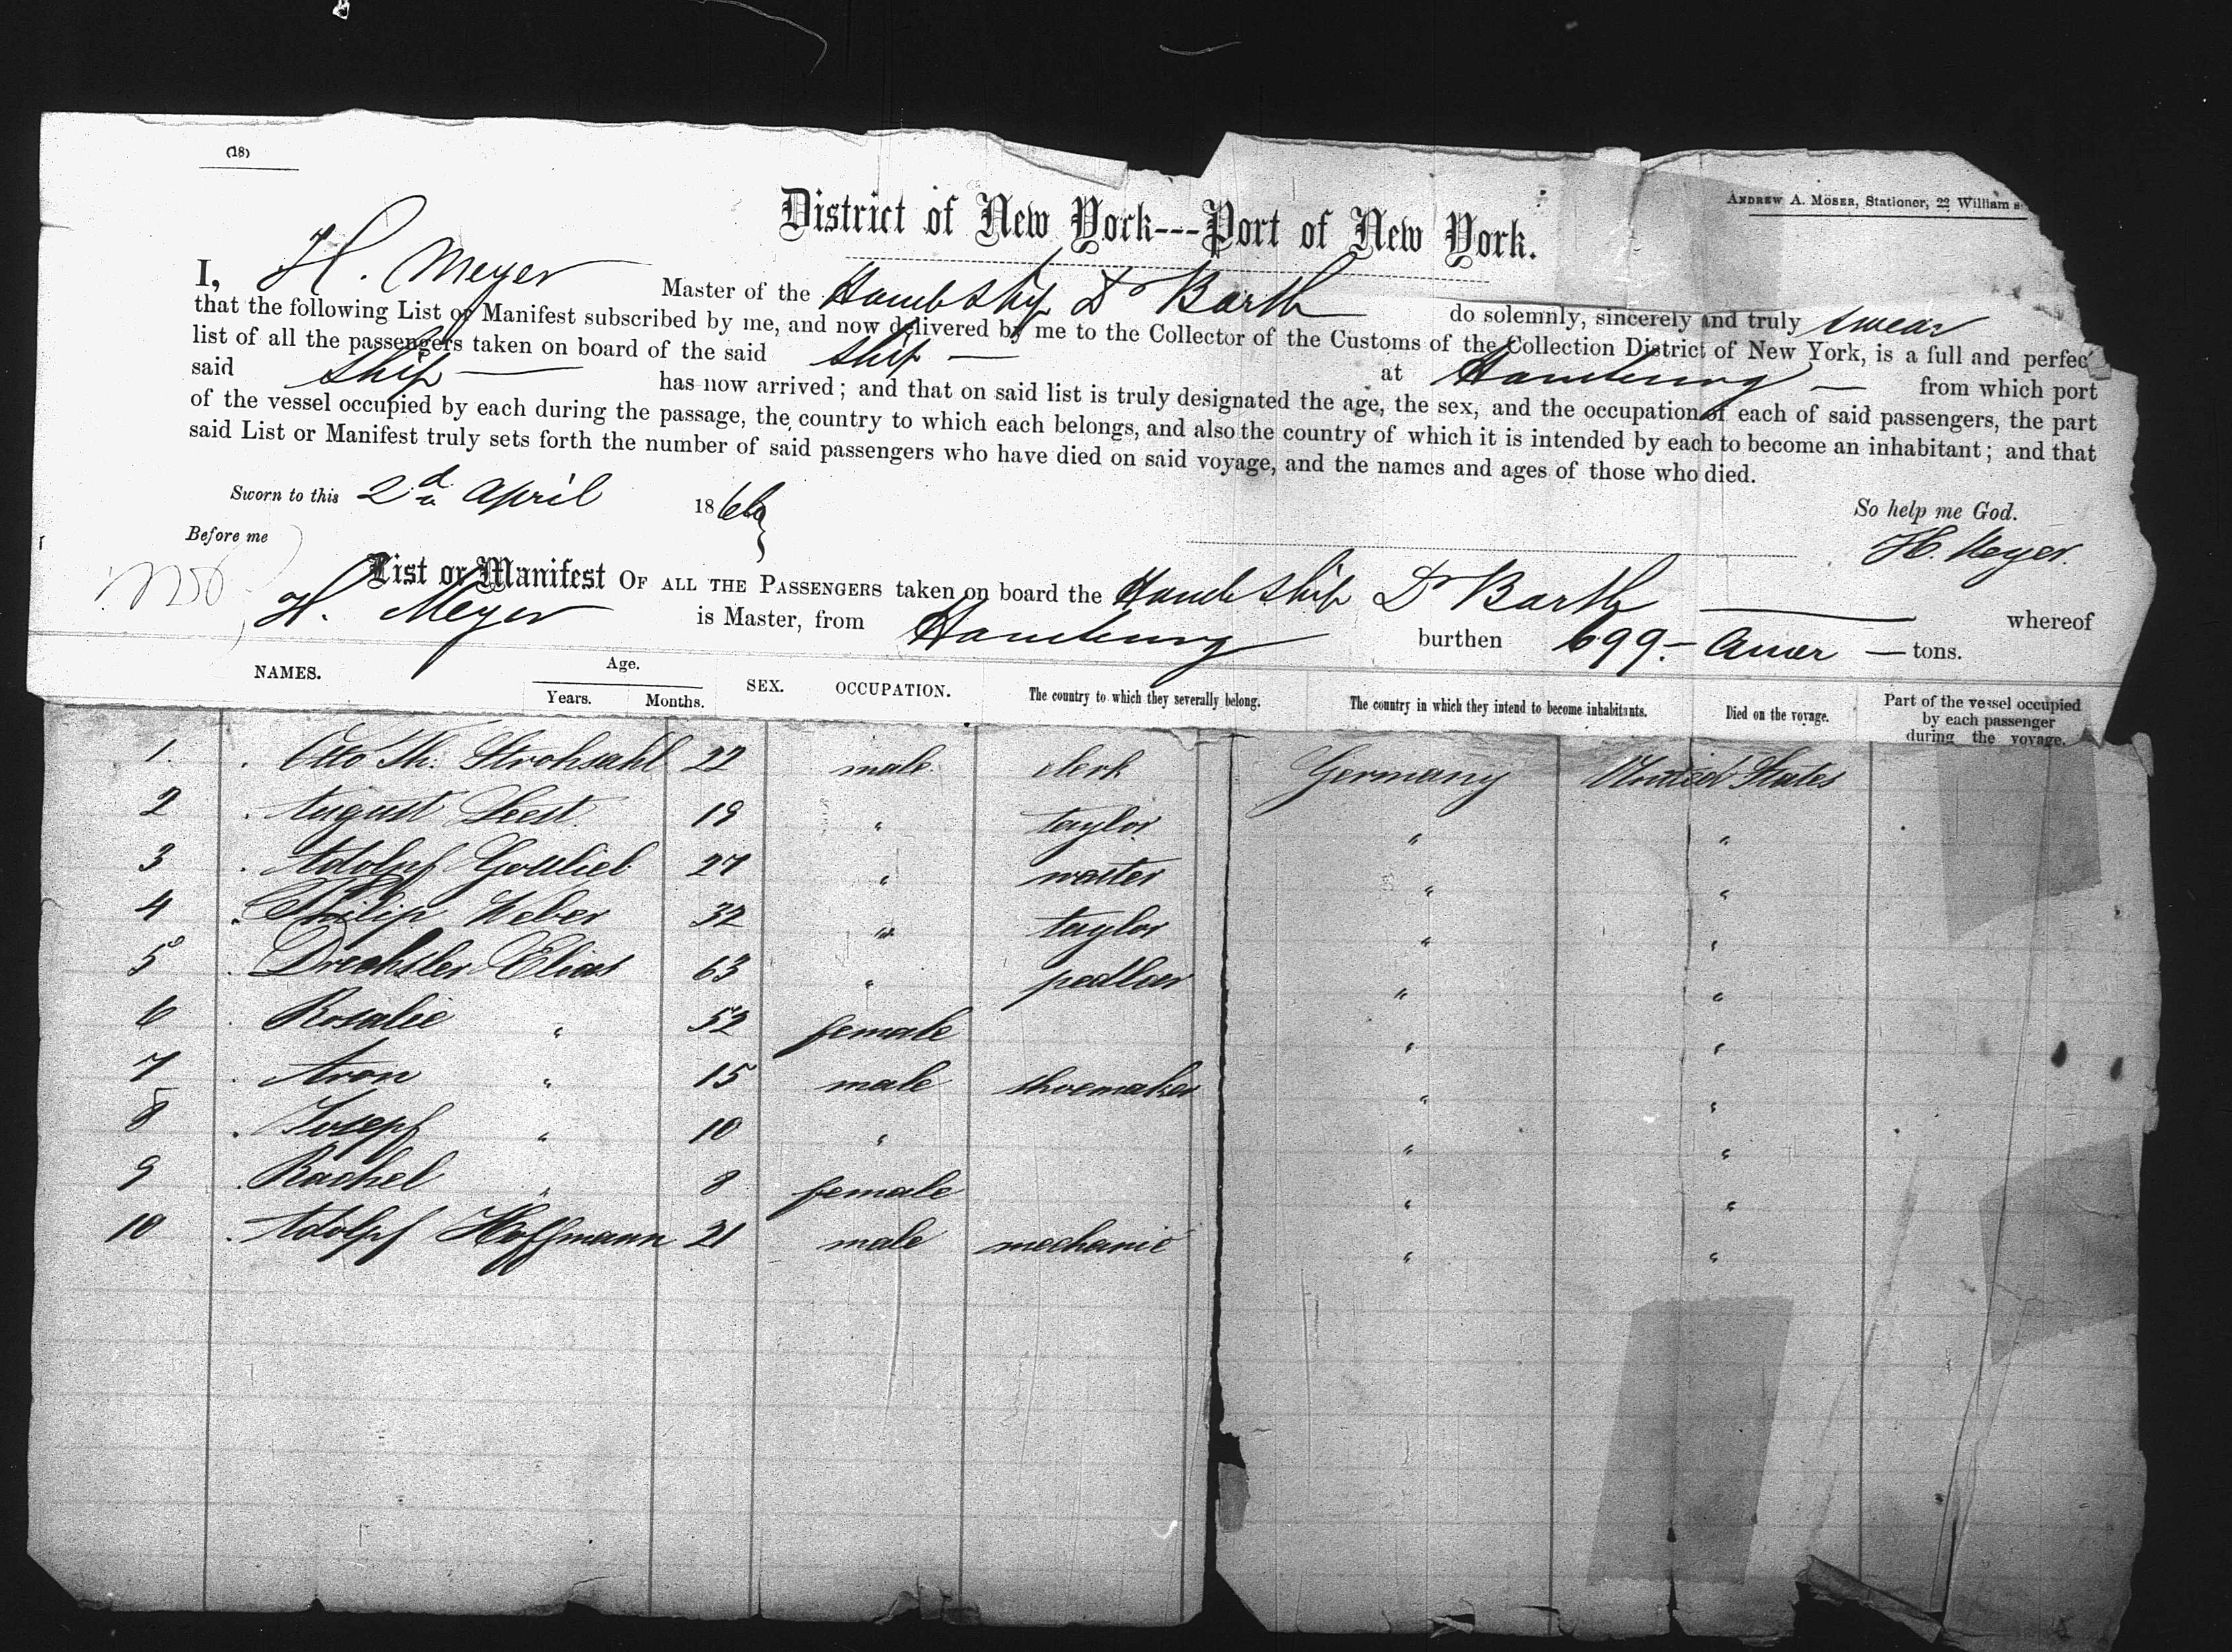 (18)
ANDREW A. MÖSER, Stationer, 22 William s
District of New York---Port of New York.
I, H. Meyer Master of the Hambship Dr Barth do solemnly, sincerely and truly swear
that the following List or Manifest subscribed by me, and now delivered by me to the Collector of the Customs of the Collection District of New York, is a full and perfec
list of all the passengers taken on board of the said ship at Hamburg from which port
said ship has now arrived; and that on said list is truly designated the age, the sex, and the occupation of each of said passengers, the part
of the vessel occupied by each during the passage, the country to which each belongs, and also the country of which it is intended by each to become an inhabitant; and that
said List or Manifest truly sets forth the number of said passengers who have died on said voyage, and the names and ages of those who died.
Sworn to this 2d April 1866 So help me God.
Before me H. Meyer.
List or Manifest OF ALL THE PASSENGERS taken on board the Hamb ship Dr Barth whereof
H. Meyer is Master, from Hamburg burthen 699.- Amer — tons.
NAMES. Age. Years. Months. SEX. OCCUPATION. The country to which they severally belong. The country in which they intend to become inhabitants. Died on the voyage. Part of the vessel occupied by each passenger during the voyage.
1. Otto Th. Strohsahl 22 male clerk Germany United States
2 August Seest. 19 " taylor " "
3 Adolpf Gottlieb 27 " waiter " "
4 Philip Weber 32 " taylor " "
5 Drechsler Elias 63 " pedlar " "
6 Rosalie " 52 female " "
7 Aron " 15 male shoemaker " "
8 Josepf " 10 " " "
9 Rachel " 8 female " "
10 Adolpf Hoffmann 21 male mechanic " "